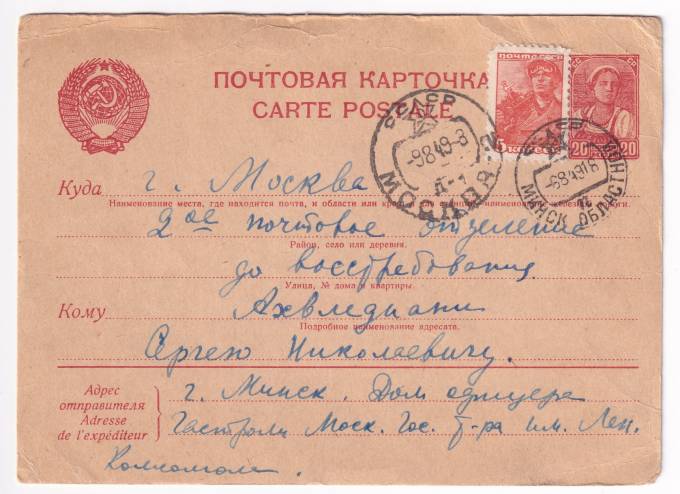 ПОЧТОВАЯ КАРТОЧКА
CARTE POSTALE
ПОЧТА СССР
5 КОПЕЕК
20 20
СССР
-9849-8
МОСКВА
Д-1
СССР
-6849 18
МИНСК ОБЛАСТНОЙ
Куда г. Москва
Наименование места, где находится почта, и области или края
2ое почтовое отделение
Район, село или деревня.
до востребования
Улица, № дома и квартиры.
Кому Ахвледиани
Подробное наименование адресата.
Сергею Николаевичу.
Адрес отправителя
Adresse de l'expéditeur
г. Минск. Дом офицера
Гастроли Моск. Гос. Т-ра им. Лен.
Комсомола.